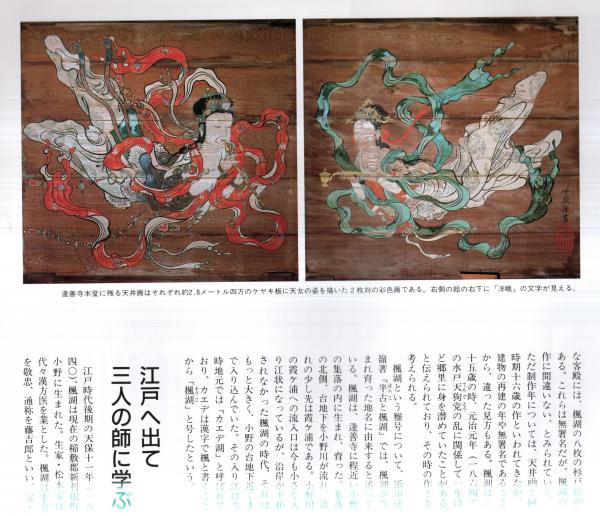 逢善寺本堂に残る天井画はそれぞれ約2.8メートル四方のケヤキ板に天女の姿を描いた2枚対の彩色画である。右側の絵の右下に「洋峨」の文字が見える。
な客殿には、楓湖の八枚の杉戸絵が
ある。これらは無署名だが、楓湖の
作に間違いない、とみられている。
ただ制作年については、天井画と同
時期十六歳の作といわれてきたが、
建物の再建の年や無署名であること
から、違った見方もある。楓湖は二
十五歳の時、元治元年(一八六四)
の水戸天狗党の乱に関係して
ど郷里に身を潜めていたことがある
と伝えられており、その時の作とも
考えられる。
楓湖という雅号について、
嶺著『半古と楓湖』では、楓湖が生
まれ育った地名に由来すると述べて
いる。楓湖は、逢善寺に程近い小野
の集落の内に生まれ、育った。集落
の北側、台地下を小野川が流れ、
れの少し先は霞ケ浦である。小野川
の霞ケ浦への流入口は今も小さな入
り江状になっているが、沿岸が干拓
されなかった楓湖の時代、それは
もっと大きく、小野の台地下近くま
で入り込んでいた。その入り江は当
時地元では「カエデ湖」と呼ばれて
おり、カエデは漢字で楓と書くこと
から「楓湖」と号したという。
江戸へ出て
三人の師に学ぶ
江戸時代後期の天保十一年(一八
四〇)、楓湖は現在の稲敷郡新利根町
小野に生まれた。生家・松本家は
代々漢方医を業とした。楓湖は本名
を敬忠、通称を藤吉郎といい、父・